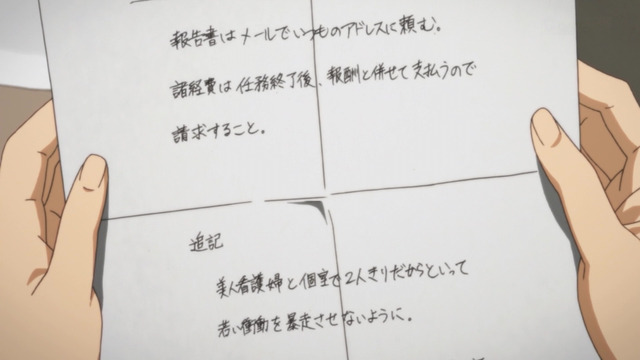 報告書はメールでいつものアドレスに頼む。
諸経費は任務終了後、報酬と併せて支払うので
請求すること。
追記
美人看護婦と個室で2人きりだからといって
若い衝動を暴走させないように。